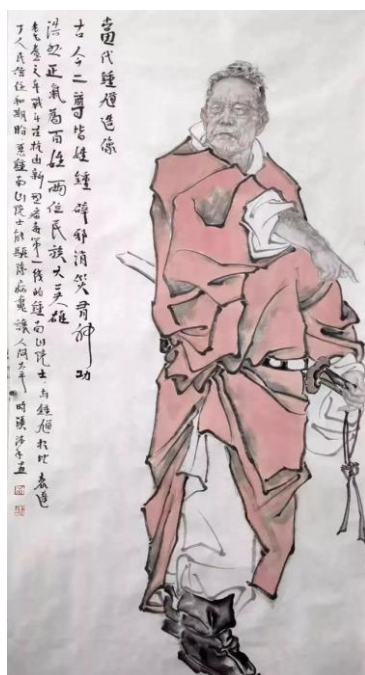 當代鍾馗造像
古今二尊皆姓鍾 辟邪消災有神功
浩然正氣為百姓 兩位民族大英雄
耄耋之年戰斗在抗击新型病毒第一线的鍾南山院士 与鍾馗相比 表達
了人民信任和期盼 愿鍾南山院士能驅除病魔 讓人間太平